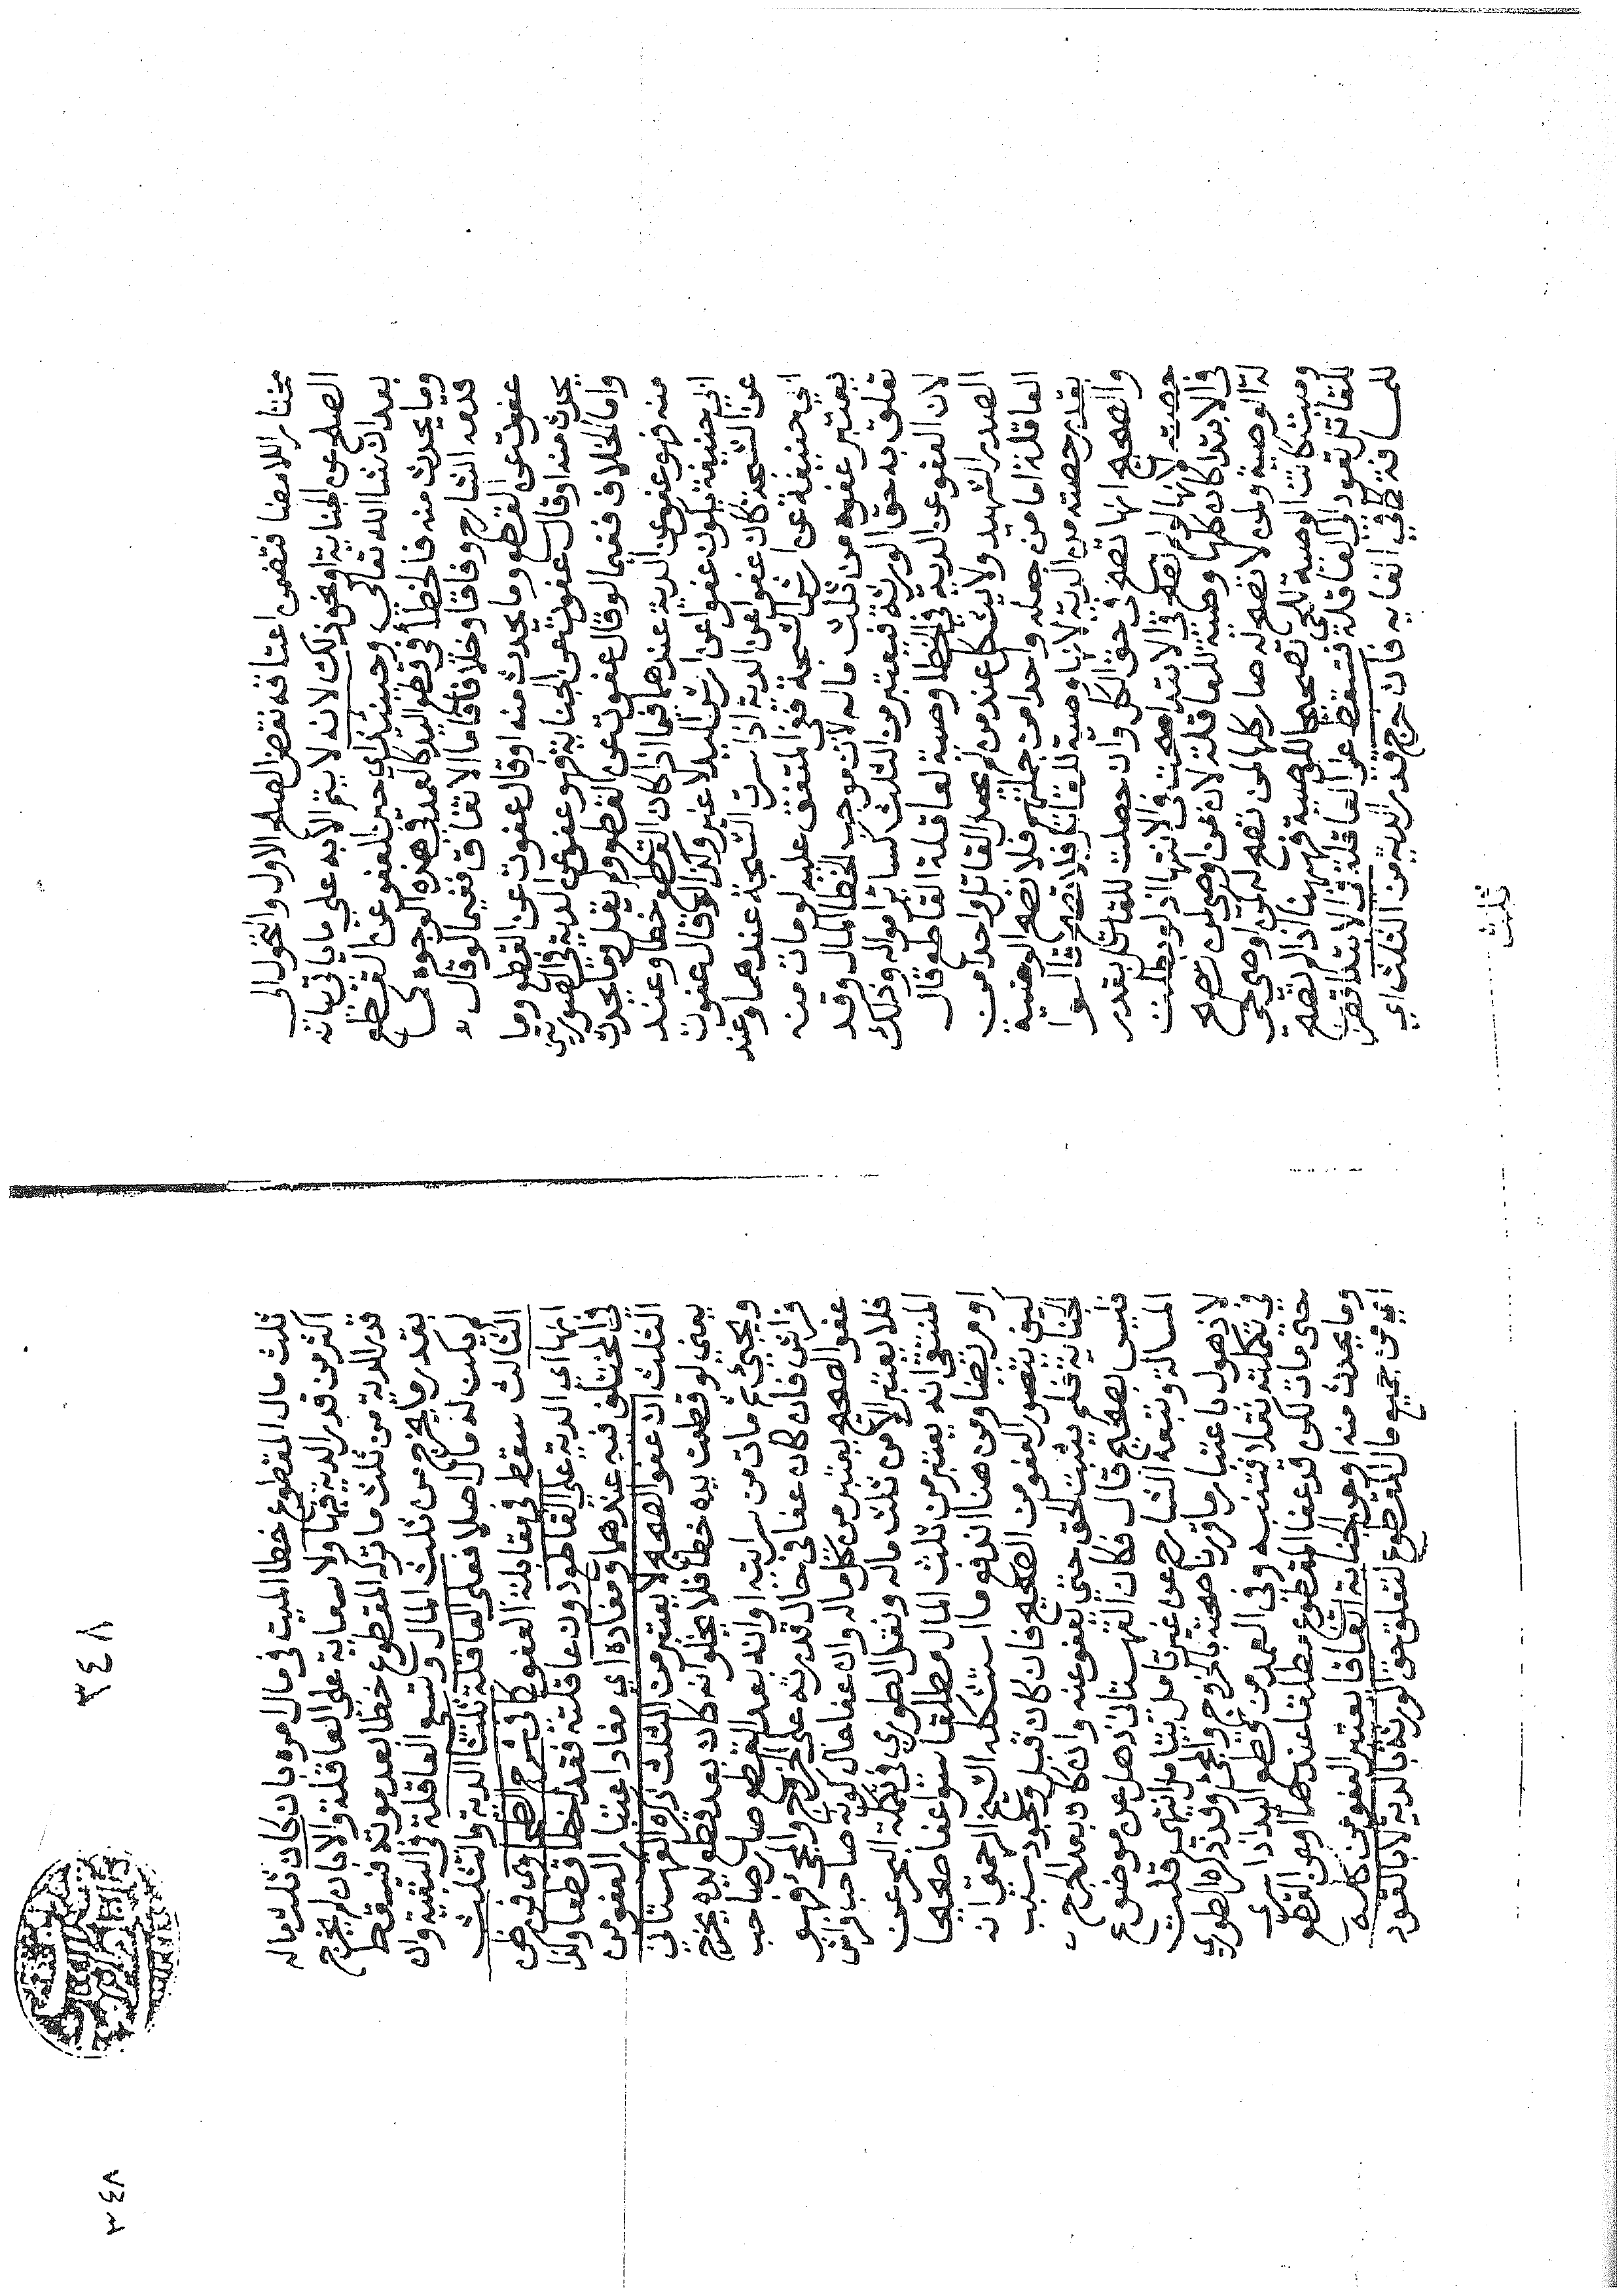 مختار للامضا فتضمن اعتاقه نقض الصلح الاول والتحول الى
الصلح عن الجناية او نحو ذلك لانه لا يتم الا به على ما ياتي بيانه
بعد ان شا الله تعالى وحينئذ اي حين العفو عن القطع
وما يحدث منه فالخطأ في قطع اليد كالعمد في هذه الوجوه كما
قدمه الشارح وفاقا وخلافا اما الاتفاق ففيما لو قال
عفوت عن القطع وما يحدث منه او قال عفوت عن القطع وما
يحدث منه او قال عفوت عن الجناية فهو عفو عن الدية في الصورتين
واما الخلاف ففيما لو قال عفوت عن القطع ولم يقل وما يحدث
منه فهو عفو عن الدية عندهما فيما اذا كان القطع خطا وعند
ابي حنيفة يكون عفوا عن ارش اليد لا غير وكذا لو قال عفوت
عن الشجة كان عفوا عن الدية اذا سرت الشجة عندهما وعند
ابي حنيفة عن ارش الشجة ففي المتفق عليه لو مات منه
يعتبر عفوه من ثلث ماله لان موجب الخطا المال وقد
تعلق به حق الورثة فيعتبر من الثلث كسائر امواله وذلك
لان العفو عن الدية في الخطا وصية لعاقلة القاطع قال
الصدر الشهيد ولا يشكل عند من لم يجعل القاتل واحدا من
العاقلة اما من جعله واحدا من جملتهم فلا تصح الوصية
بقدر حصته من الدية لانها وصية للقاتل فلا تصح قالوا
والصحيح انها تصح في حق الكل وان حصلت للقاتل بقدر
حصته لانها لو لم تصح في الابتدا صحت في الانتها اذ لو بطلت
في الابتدا كان كلها وصية للعاقلة لان من اوصى لمن تصح
له الوصية ولمن لا تصح له صار كلها لمن تصح له كمن اوصى لحي
وميت كانت الوصية للحي تصحيحا للوصية فههنا اذا لم تصح
للقاتل تعود الى العاقلة فتسقط عن العاقلة في الابتدا قصر
للمسافة كما في الغاية فان خرج قدر الدية من الثلث اي
ثلث
٣٤٨
ثلث مال المقطوع خطا الميت في مال امره بان كان ثلث ماله
اكثر من قدر الدية فبها ولا سعاية على العاقلة والا بان لم يخرج
قدر الدية من ثلث ما تركه المقطوع خطا بعد موته فيسقط
بقدر ما يخرج من ثلث المال وتسعى العاقلة في البقية وان
لم يكن له مال اصلا فعلى العاقلة ثلثا الدية والثلث
الثالث سقط في مقابلة العفو كما في شرح الطحاوي في ظن
انها اي الدية على القاطع دون عاقلته فقد اخطا قطعا وكذا
في المختلف فيه عندهما ومفاده اي مفاد اعتبار العفو من
الثلث ان عفو الصحيح لا يعتبر من الثلث ذكره القهستاني
يعني لو قطعت يده خطا فلا يخلو انه كان بعد قطع يده يخرج
ويجئ ثم مات من سرايته او انه بعد القطع صار صاحب
فراش فان كان عفا في حال قدرته على الخروج والمجئ فهو
عفو الصحيح يعتبر من كل ماله وان عفا حال كونه صاحب فراش
فلا يعتبر الا من ثلث ماله ونقل الطوري في تكملة البحر عن
المنتقى انه يعتبر من ثلث المال مطلقا سوا عفا صحيحا
او مريضا ومن هنا اندفع ما استشكله الشيخ الرحمتي انه
كيف يتصور العفو من الصحيح فان كان قبل وجود سبب
الجناية فلم يثبت الحق حتى يعفو عنه وان كان بعد الجرح
فليس بصحيح قال فكان القهستاني ذهل عن موضوع
المسالة وتبعه الشارح عن غير تامل يتامل انتهى قلت
لا ذهول باعتبار ما قررنا صحته بالخروج والمجئ وقد ذكره الطوري
في تكملته نقلا فتنبه وفي العمد من قطع اليد اذا سرى
حتى مات لكن قد عفا المقطوع مطلقا عندهما او عن القطع
وما يحدث منه او عن الجناية اتفاقا يعتبر العفو من كله
اي من جميع مال المقطوع لتعلق حق الورثة بالدية لا بالقود
٣٤٨